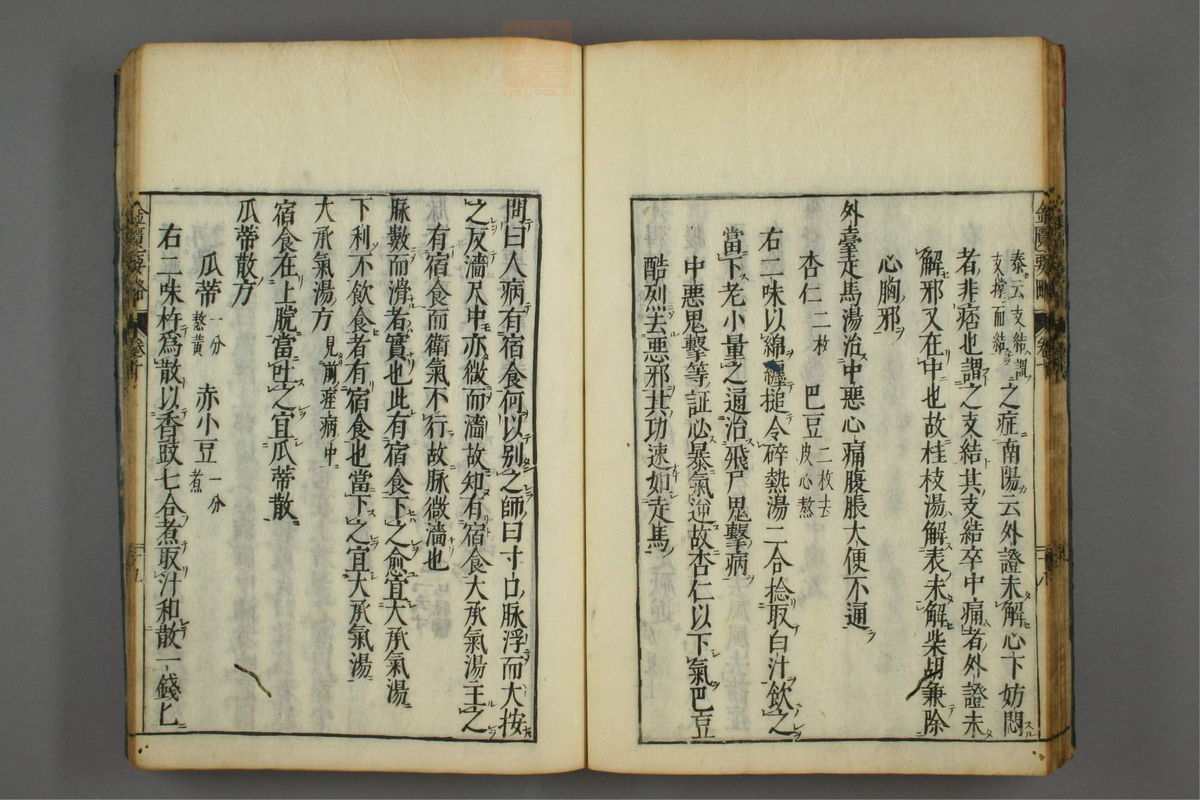 泰云支結謂
支撐而結
之症南陽云外證未解心下妨悶
者非痞也謂之支結其支結卒中痛者外證未
解邪又在中也故桂枝湯解表未解柴胡兼除
心胸邪
外臺走馬湯治中惡心痛腹脹大便不通
杏仁二枚 巴豆二枚去皮心熬
右二味以綿纏搥令碎熱湯二合捻取白汁飲之
當下老小量之通治飛尸鬼擊病
中惡鬼擊等証必暴氣逆故杏仁以下氣巴豆
酷烈去惡邪其功速如走馬
問曰人病有宿食何以別之師曰寸口脉浮而大按
之反濇尺中亦微而濇故知有宿食大承氣湯主之
有宿食而衛氣不行故脉微濇也
脉數而滑者實也此有宿食下之愈宜大承氣湯
下利不飲食者有宿食也當下之宜大承氣湯
大承氣湯方見前痓病中
宿食在上脘當吐之宜瓜蒂散
瓜蒂散方
瓜蒂一分熬黃 赤小豆一分煮
右二味杵爲散以香豉七合煮取汁和散一錢匕